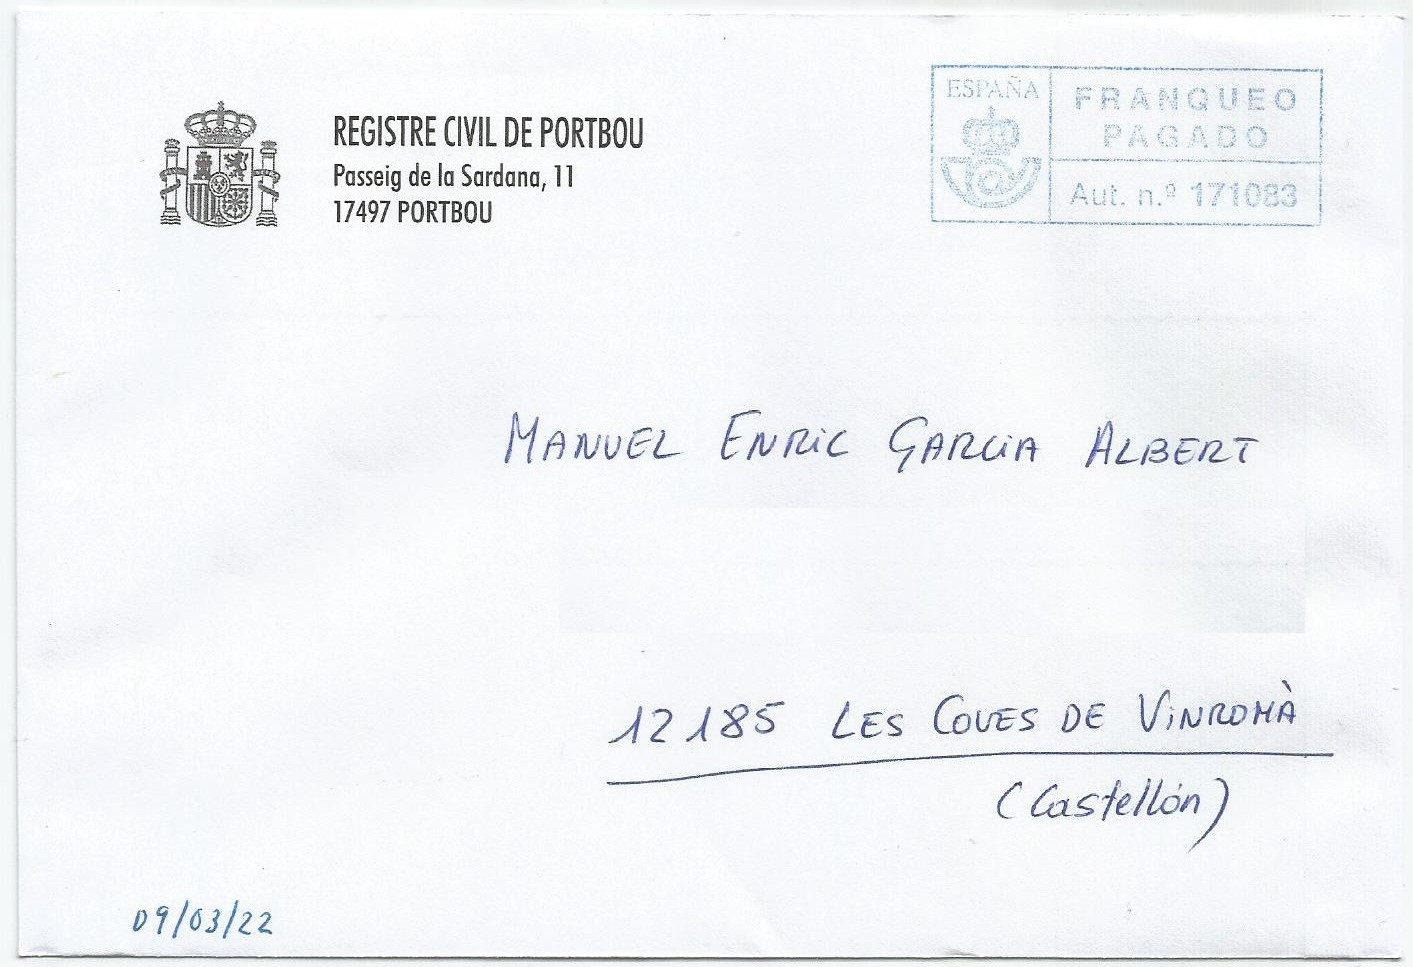 REGISTRE CIVIL DE PORTBOU
Passeig de la Sardana, 11
17497 PORTBOU
ESPAÑA
FRANQUEO
PAGADO
Aut. n.º 171083
MANUEL ENRiC GARCIA ALBERT
12185 LES COVES DE ViNROMÀ
(Castellón)
09/03/22